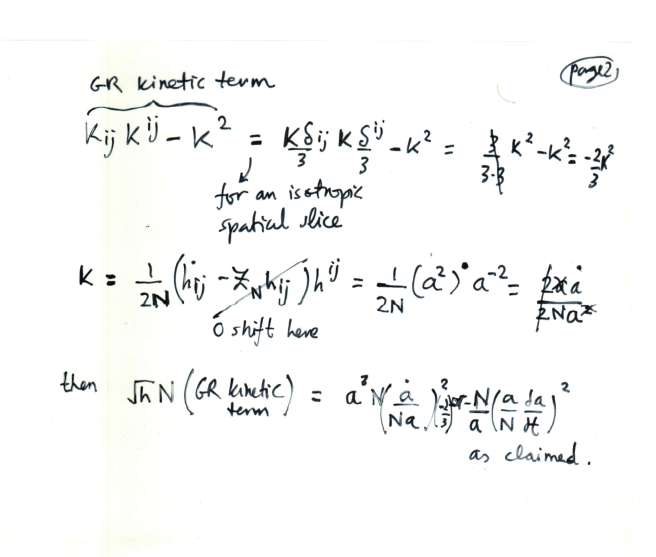 page 2
GR kinetic term
K_ij K^ij - K^2 = K δ_ij/3 K δ^ij/3 - K^2 = 3/(3·3) K^2 - K^2 = -2K^2/3
for an isotropic
spatial slice
K = 1/2N (ḣ_ij - ℒ_N h_ij) h^ij = 1/2N (a^2)˙ a^-2 = 2aȧ/2Na^2
0 shift here
then √h N (GR kinetic term) = a^3 N (ȧ/Na)^2 (-2/3) or -N/a (a/N da/dt)^2
as claimed.